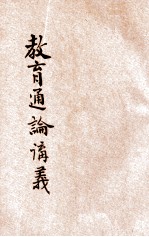 教育通論講義